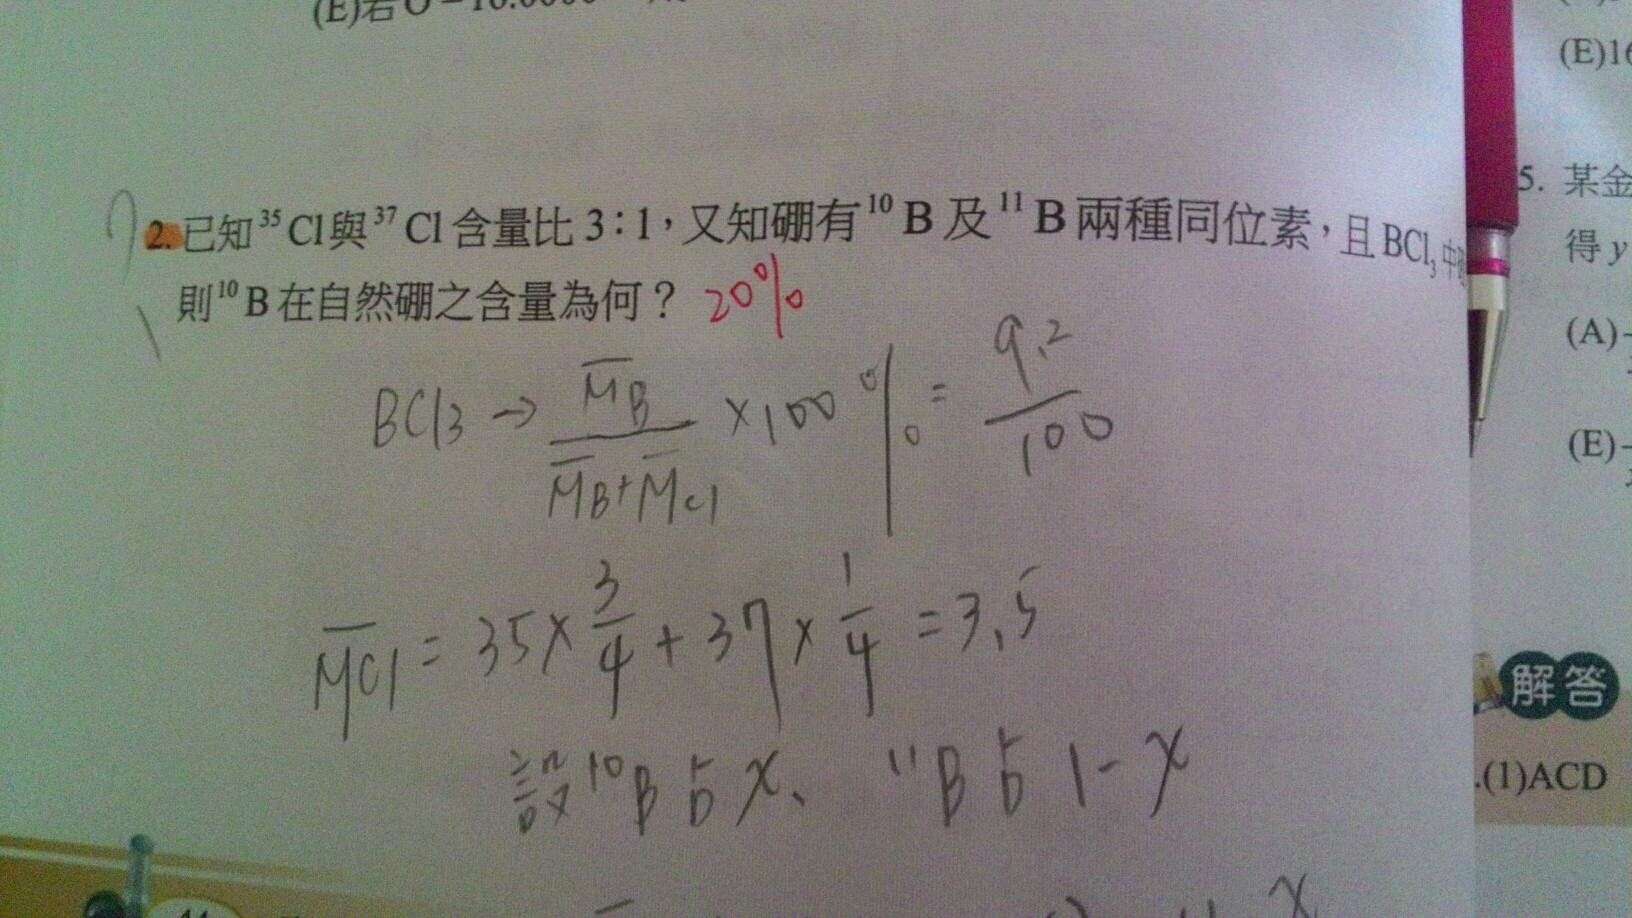 (E)若O
(E)16
2. 已知 ³⁵Cl與³⁷Cl 含量比 3:1,又知硼有 ¹⁰B 及 ¹¹B 兩種同位素,且 BCl₃ 中
則 ¹⁰B 在自然硼之含量為何? 20%
BCl3 → M̅B / M̅B+M̅Cl ×100% = 9.2/100
M̅Cl = 35×3/4 + 37×1/4 = 3.5
設 ¹⁰B 占 x、 ¹¹B 占 1-x
x
5. 某金
得 y
(A)
(E)
解答
.(1)ACD